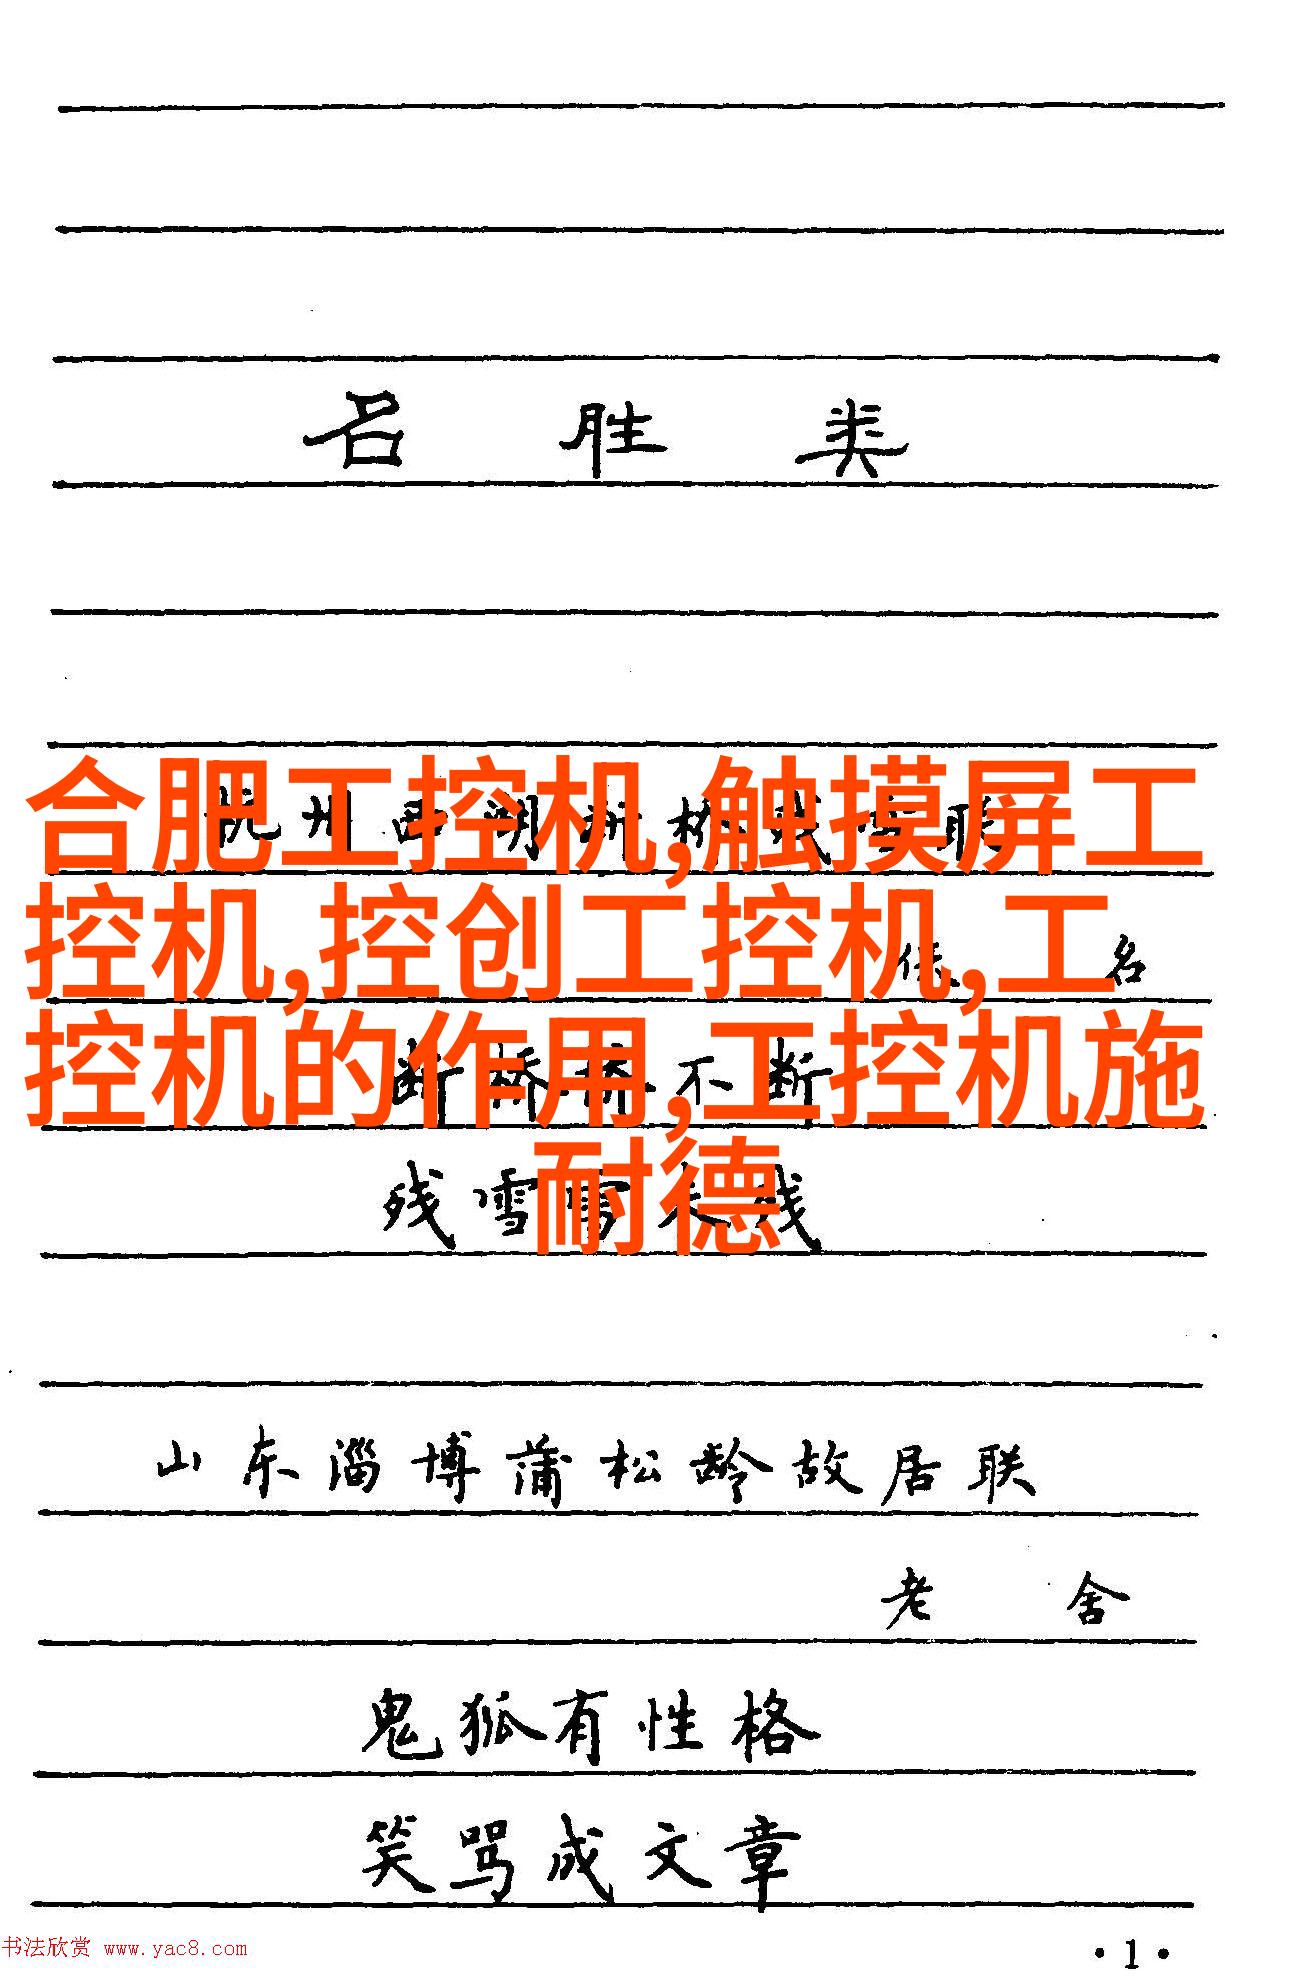 名胜类
杭州西湖断桥残雪联
合肥工控机,触摸屏工
控机,控创工控机,工
控机的作用,工控机施
耐德
佚名
断桥桥不断
残雪雪未残
山东淄博蒲松龄故居联
老舍
鬼狐有性格
笑骂成文章
书法欣赏 www.yac8.com
·1·